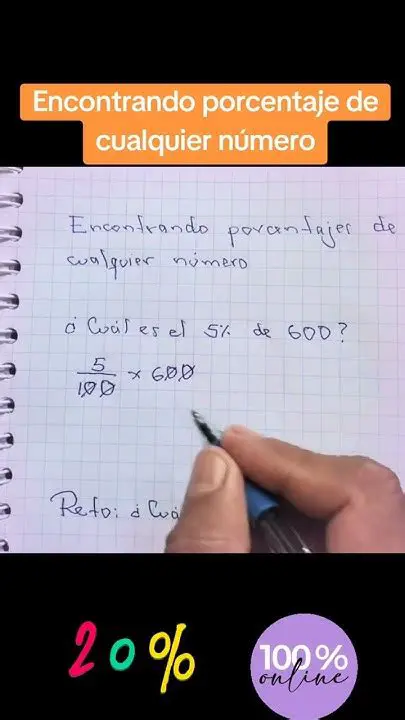 Encontrando porcentaje de
cualquier número
Encontrando porcentajes de
cualquier número
¿Cuál es el 5% de 600?
5
100 × 600
Reto: ¿Cuá
20%
100%
online